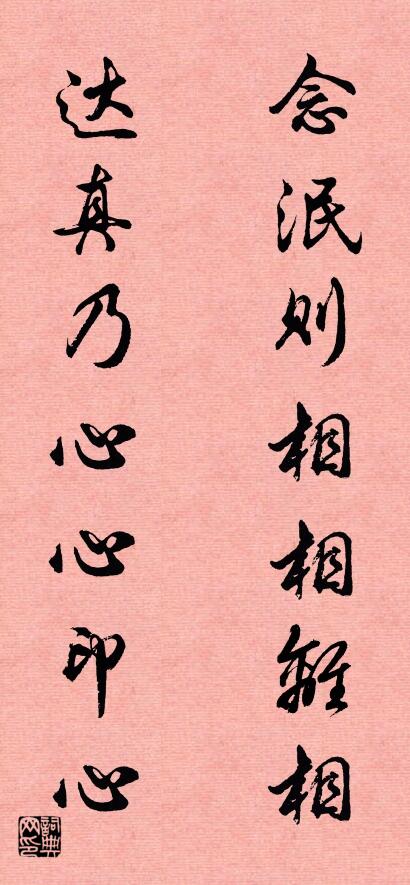 念泯则相相離相
达真乃心心印心
詞典网印